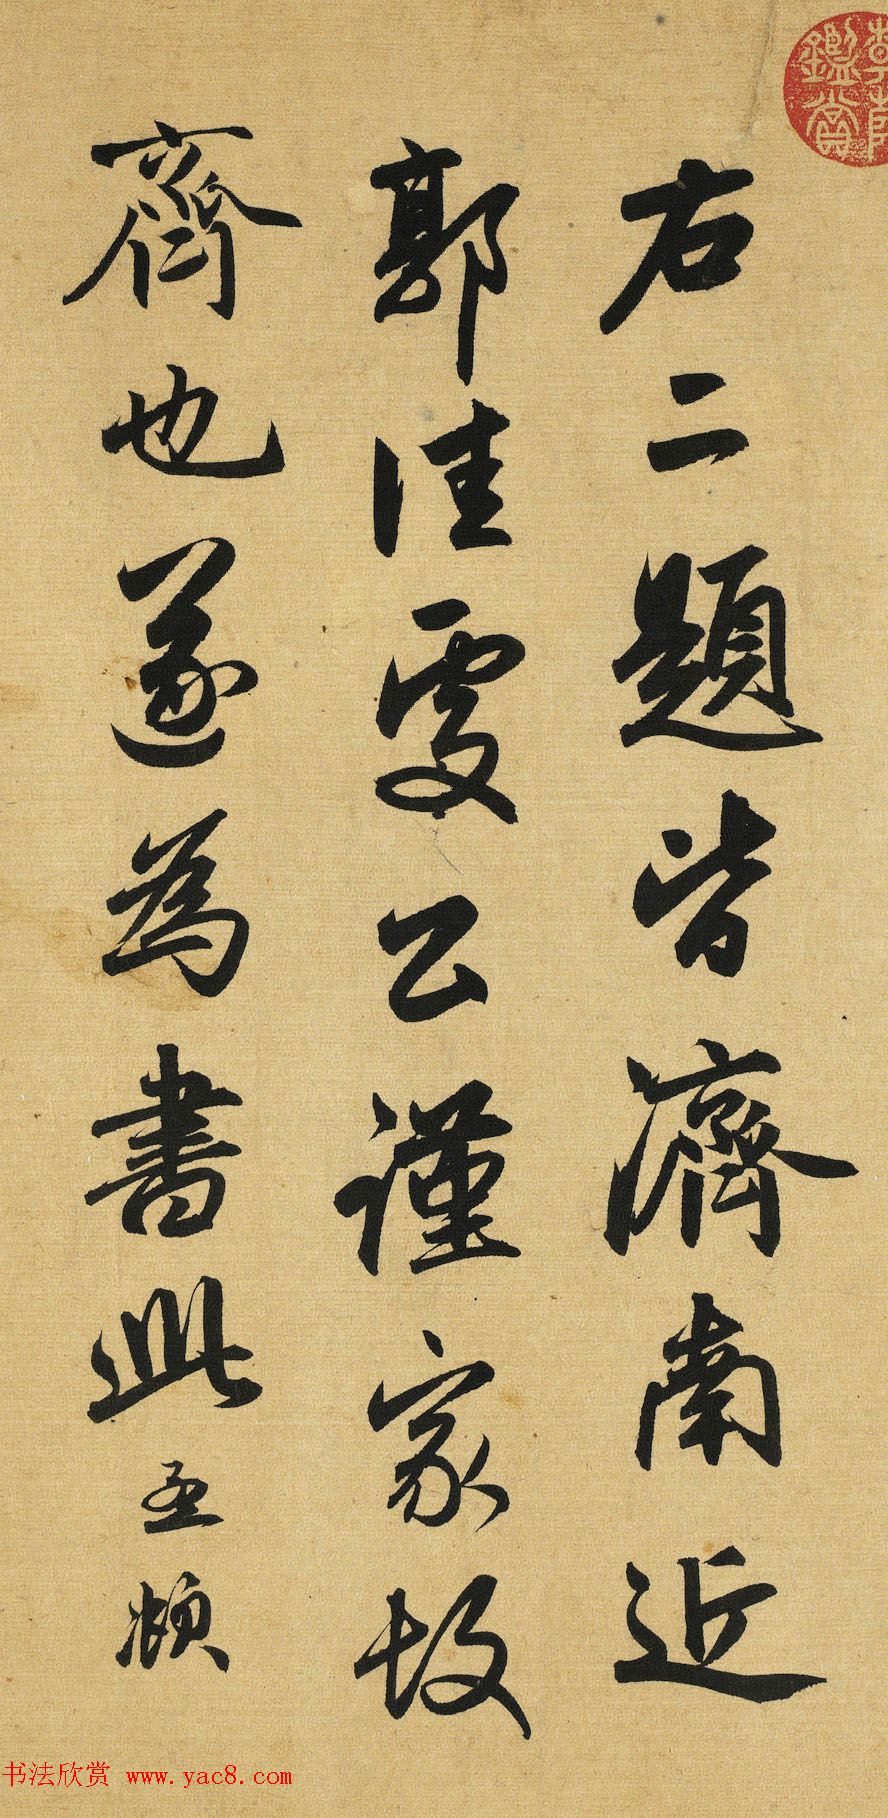 右二題皆濟南近
郭佳處公謹家故
齊也遂為書此孟頫
書法欣赏 www.yac8.com